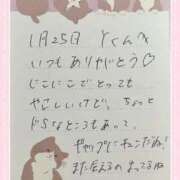 1月25日 Yくんへ
いつもありがとう♡
にこにこでとっても
やさしいけど、ちょっと
ドSなところもあって、
ギャップにキュンだね!
また会えるの まってるね